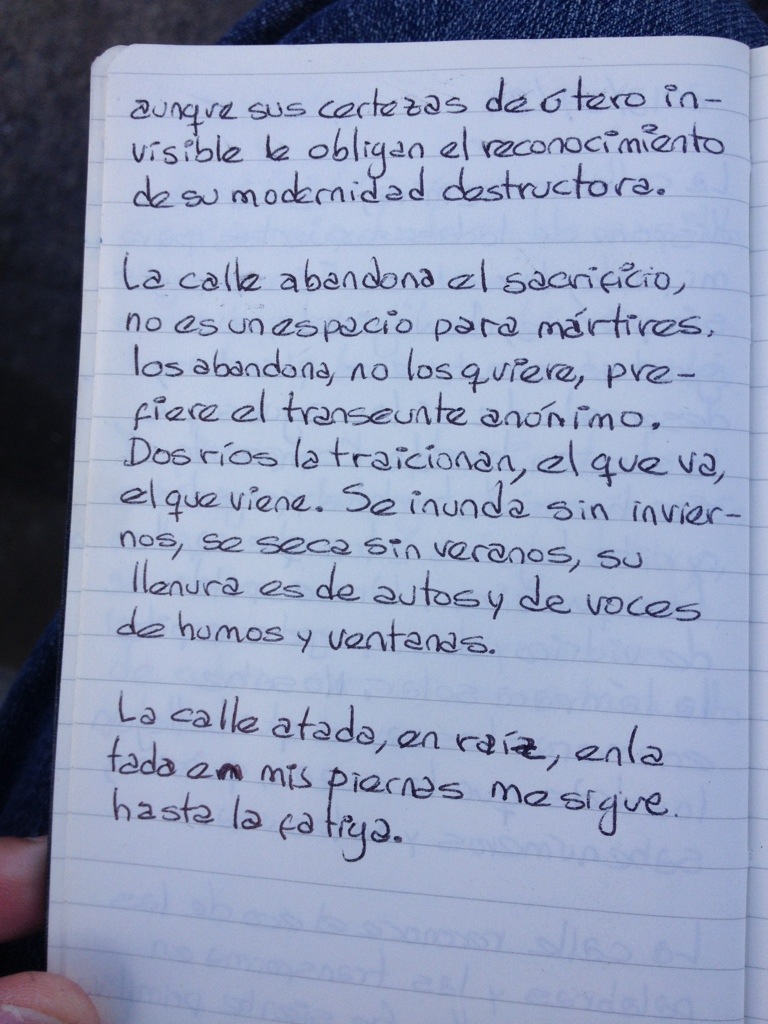 aunque sus certezas de útero in-
visible le obligan el reconocimiento
de su modernidad destructora.
La calle abandona el sacrificio,
no es un espacio para mártires,
los abandona, no los quiere, pre-
fiere el transeunte anónimo.
Dos ríos la traicionan, el que va,
el que viene. Se inunda sin invier-
nos, se seca sin veranos, su
llenura es de autos y de voces
de humos y ventanas.
La calle atada, en raíz, enla
tada en mis piernas me sigue.
hasta la fatiga.